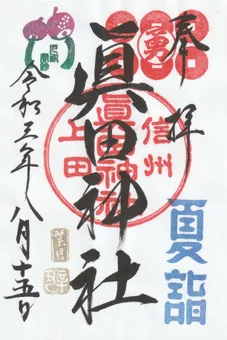 奉拝
勇
夏詣
眞田神社
信州
上田
眞田神社
令和三年八月十五日
葉月